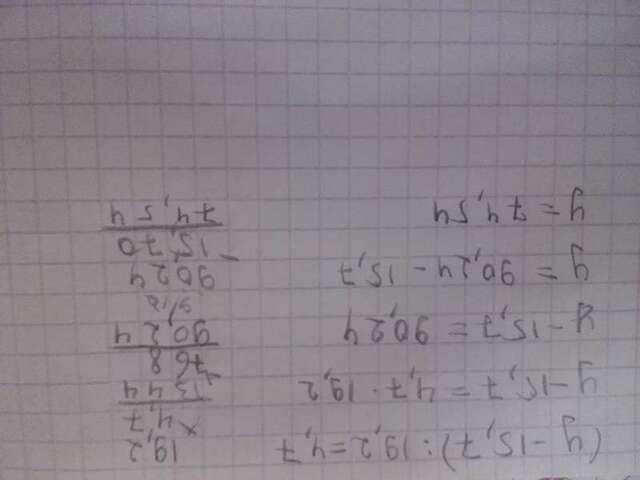 (y - 15,7) : 19,2 = 4,7
y - 15,7 = 4,7 · 19,2
y - 15,7 = 90,24
y = 90,24 - 15,7
y = 74,54
19,2
× 4,7
1344
768
90,24
9024
- 15,70
74,54